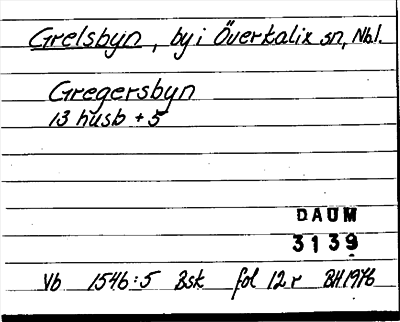 Grelsbyn, by i Överkalix sn, Nbl.
Gregersbyn
13 husb + 5
DAUM
3139
Vb 1546:5 Bsk fol 12 r BH 1976